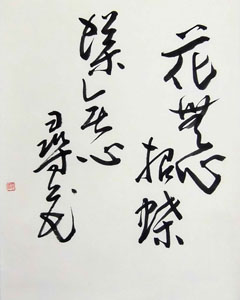 花無心招蝶
蝶無心尋花